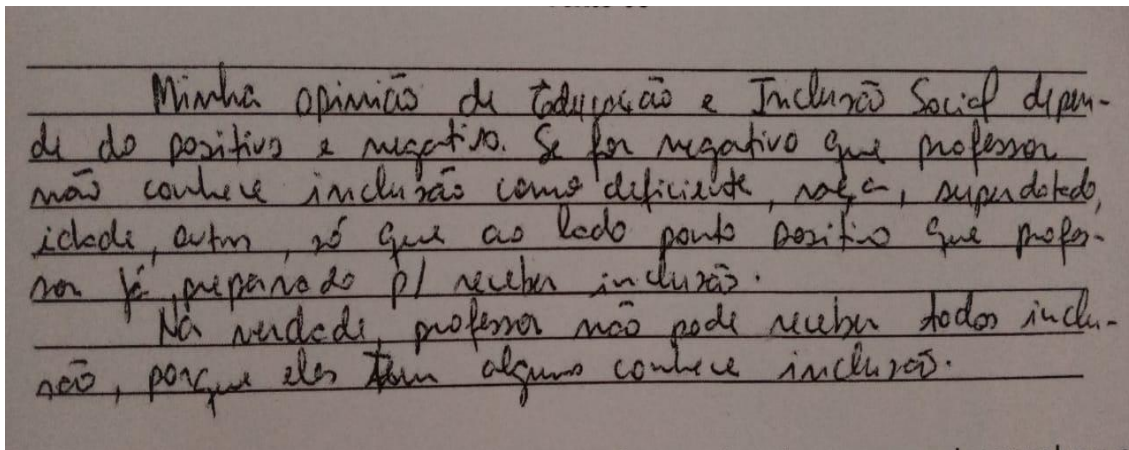 Minha opinião de Educação e Inclusão Social depen-
de do positivo e negativo. Se for negativo que professor
não conhece inclusão como deficiente, raça, superdotado,
idade, outros, só que ao lado ponto positivo que profes-
sor já preparado p/ receber inclusão.
Na verdade, professor não pode receber todos inclu-
são, porque eles tem alguns conhece inclusão.